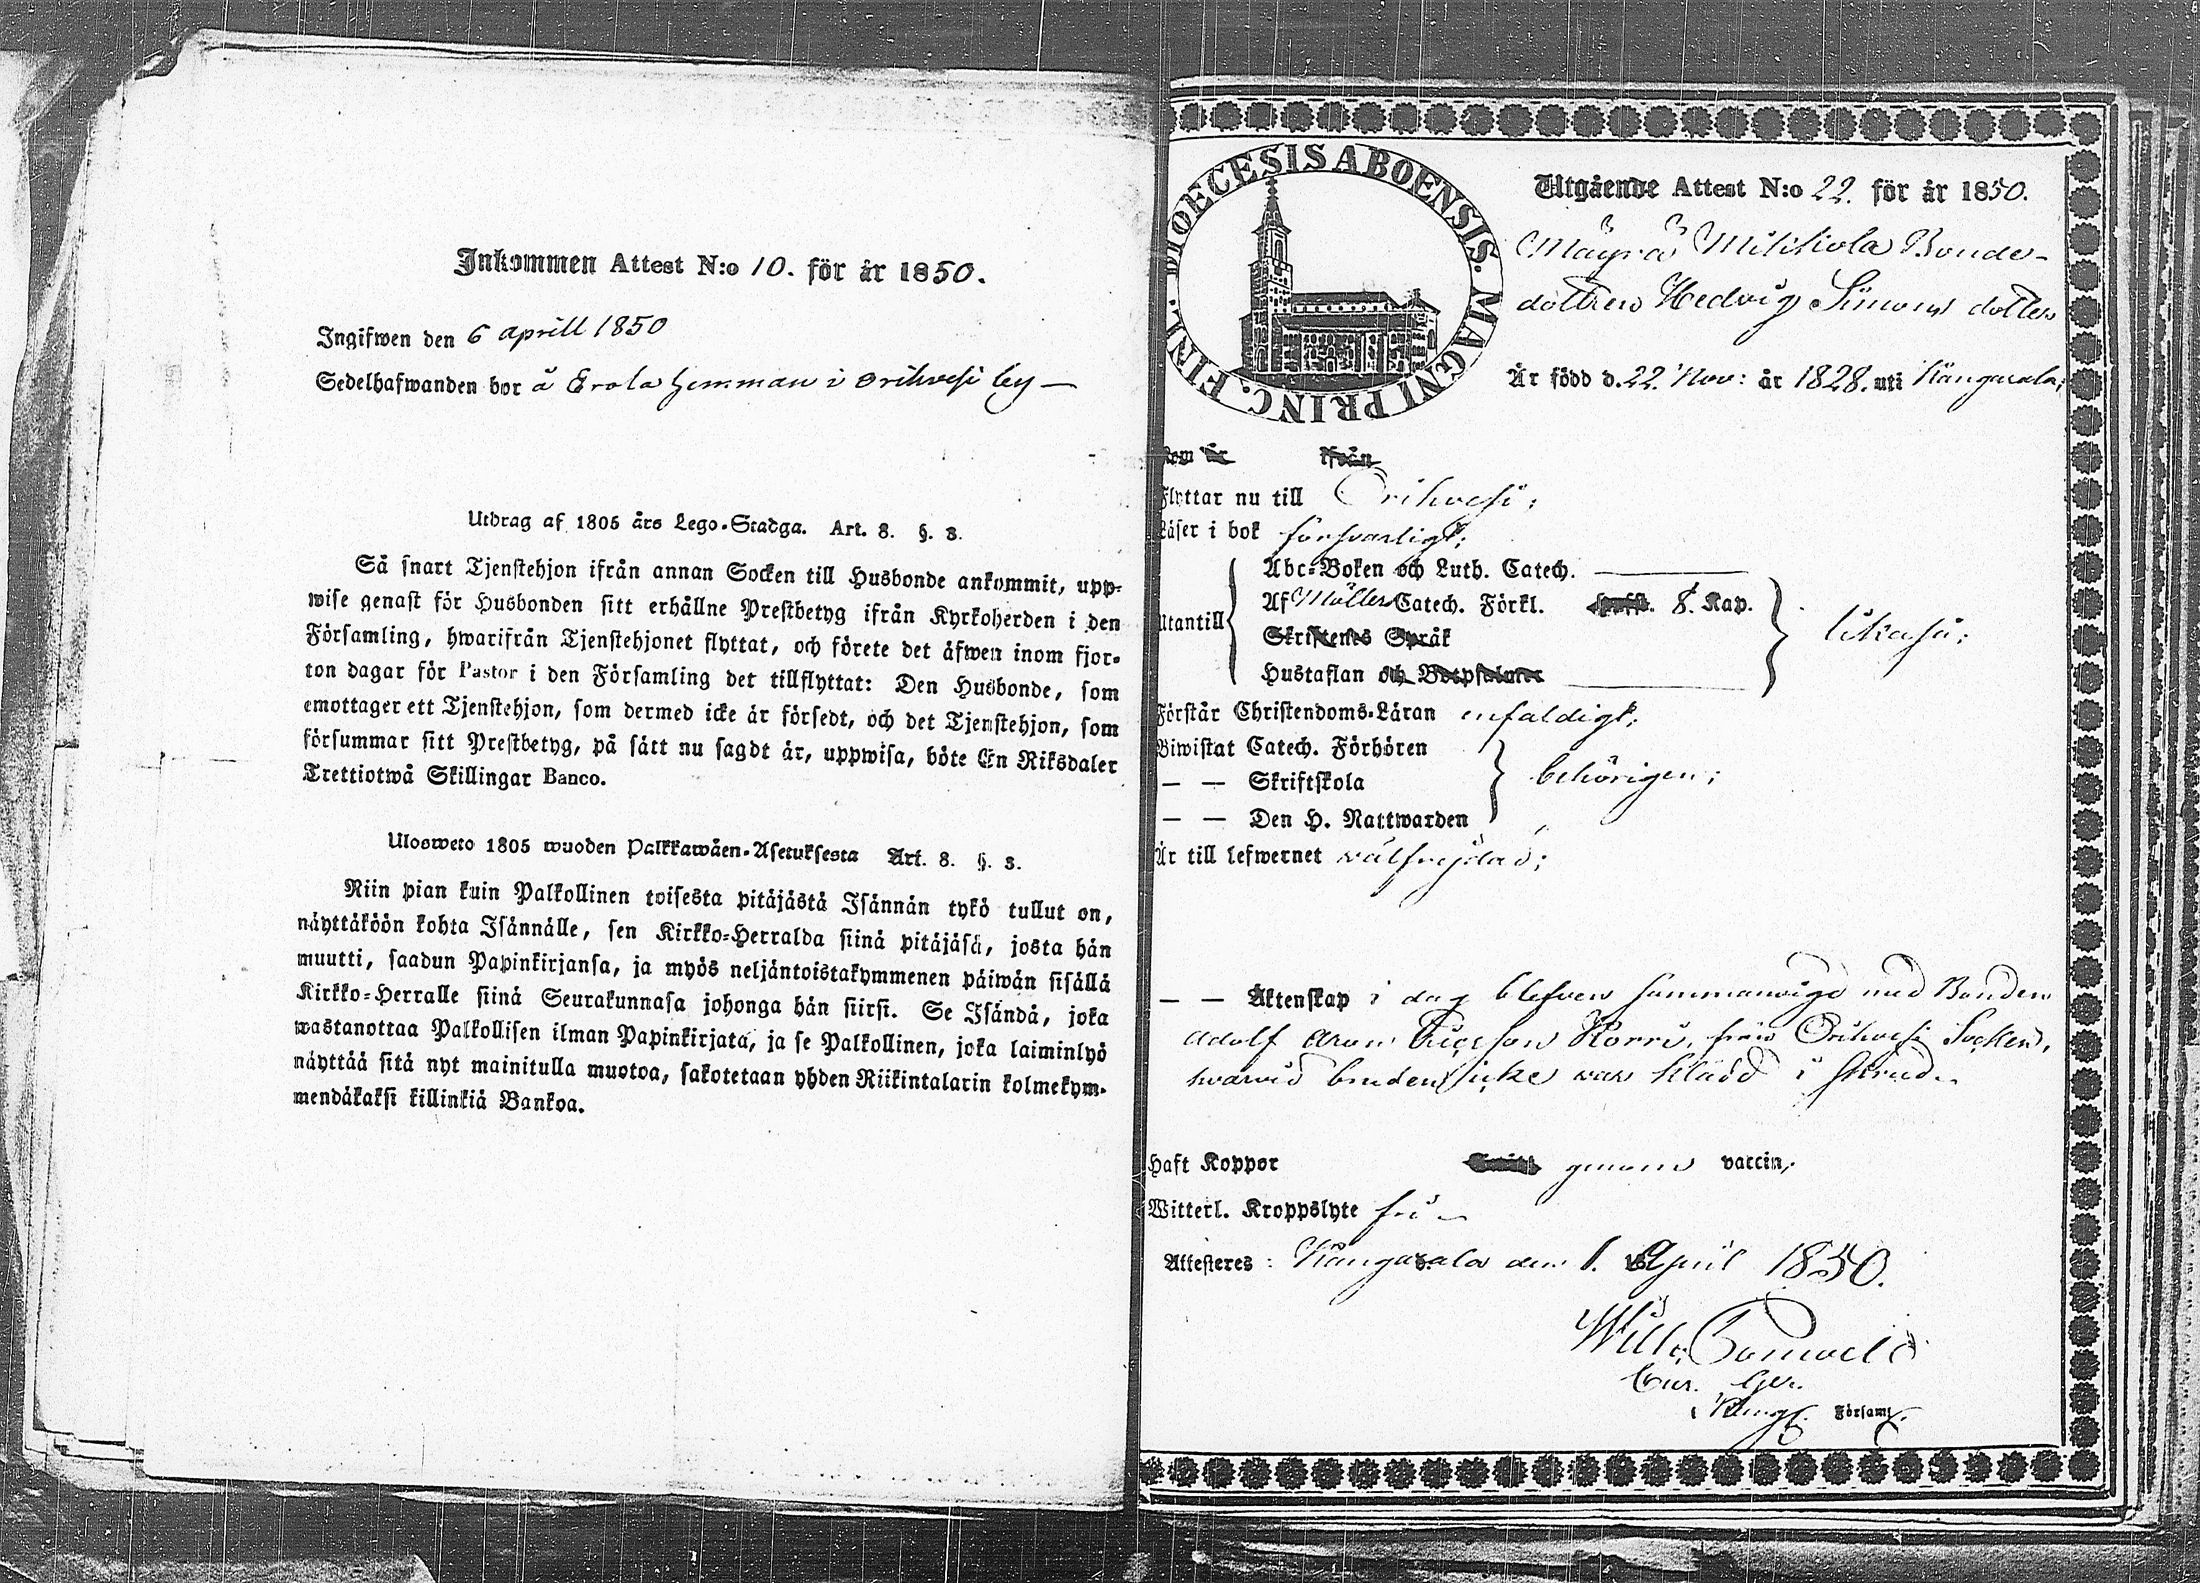 Inkommen Attest N:o 10. för år 1850.
Ingifwen den 6 aprill 1850
Sedelhafwanden bor å Erola hemman i Orihvesi by —
Utdrag af 1805 års Lego-Stadga. Art. 8. §. 3.
Så snart Tjenstehjon ifrån annan Socken till Husbonde ankommit, upp-
wise genast för Husbonden sitt erhållne Prestbetyg ifrån Kyrkoherden i den
Församling, hwarifrån Tjenstehjonet flyttat, och förete det äfwen inom fjor-
ton dagar för Pastor i den Församling det tillflyttat: Den Husbonde, som
emottager ett Tjenstehjon, som dermed icke är försedt, och det Tjenstehjon, som
försummar sitt Prestbetyg, på sätt nu sagdt är, uppwisa, böte En Riksdaler
Trettiotwå Skillingar Banco.
Ulosweto 1805 wuoden Palkkawäen-Asetuksesta Art. 8. §. 3.
Niin pian kuin Palkollinen toisesta pitäjästä Isännän tykö tullut on,
näyttäköön kohta Isännälle, sen Kirkko-Herralda siinä pitäjäsä, josta hän
muutti, saadun Papinkirjansa, ja myös neljäntoistakymmenen päiwän sisällä
Kirkko-Herralle siinä Seurakunnasa johonga hän siirsi. Se Isändä, joka
wastanottaa Palkollisen ilman Papinkirjata, ja se Palkollinen, joka laiminlyö
näyttää sitä nyt mainitulla muotoa, sakotetaan yhden Riikintalarin kolmekym-
mendäkaksi killinkiä Bankoa.
DIOECESIS ABOENSIS. MAGNI PRINC. FINL.
Utgående Attest N:o 22. för år 1850.
Mäyrä Mikkola Bonde-
dottren Hedvig Simons dotter
Är född d. 22. Nov: år 1828. uti Kangasala;
Kom år ifrån
Flyttar nu till Orihvesi;
Läser i bok försvarligt;
Abc-Boken och Luth. Catech. —
Utantill Af Möllers Catech. Förkl. 8. Kap. likaså;
Skriftenes Språk
Hustaflan och Botpsalmer —
Förstår Christendoms-Läran enfaldigt;
Biwistat Catech. Förhören
— — Skriftskola behörigen;
— — Den H. Nattwarden
Är till lefwernet välfrejdad;
— — Äktenskap i dag blefven sammanvigd med Bonden
Adolf Aron Ericsson Korri, från Orihvesi Socken,
hvarvid bruden icke var klädd i skrud.
Haft Koppor genom vaccin;
Witterl. Kroppslyte fri —
Attesteres: Kangasala den 1. April 1850.
Wilh.
Församl.